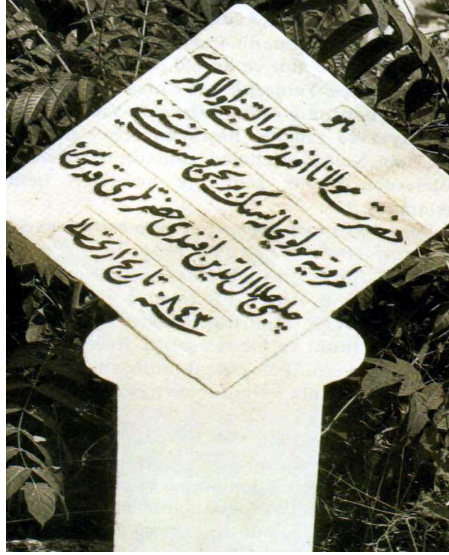 یا هو
حضرت مولانا افندمزك التنجی اولادلری
مرادیه مولویخانه‌سنك برنجی پوست نشینی
چلبی جلال الدین افندی حضرتلری قدس سره
تاریخ ارتحالی سنه ٨٤٣